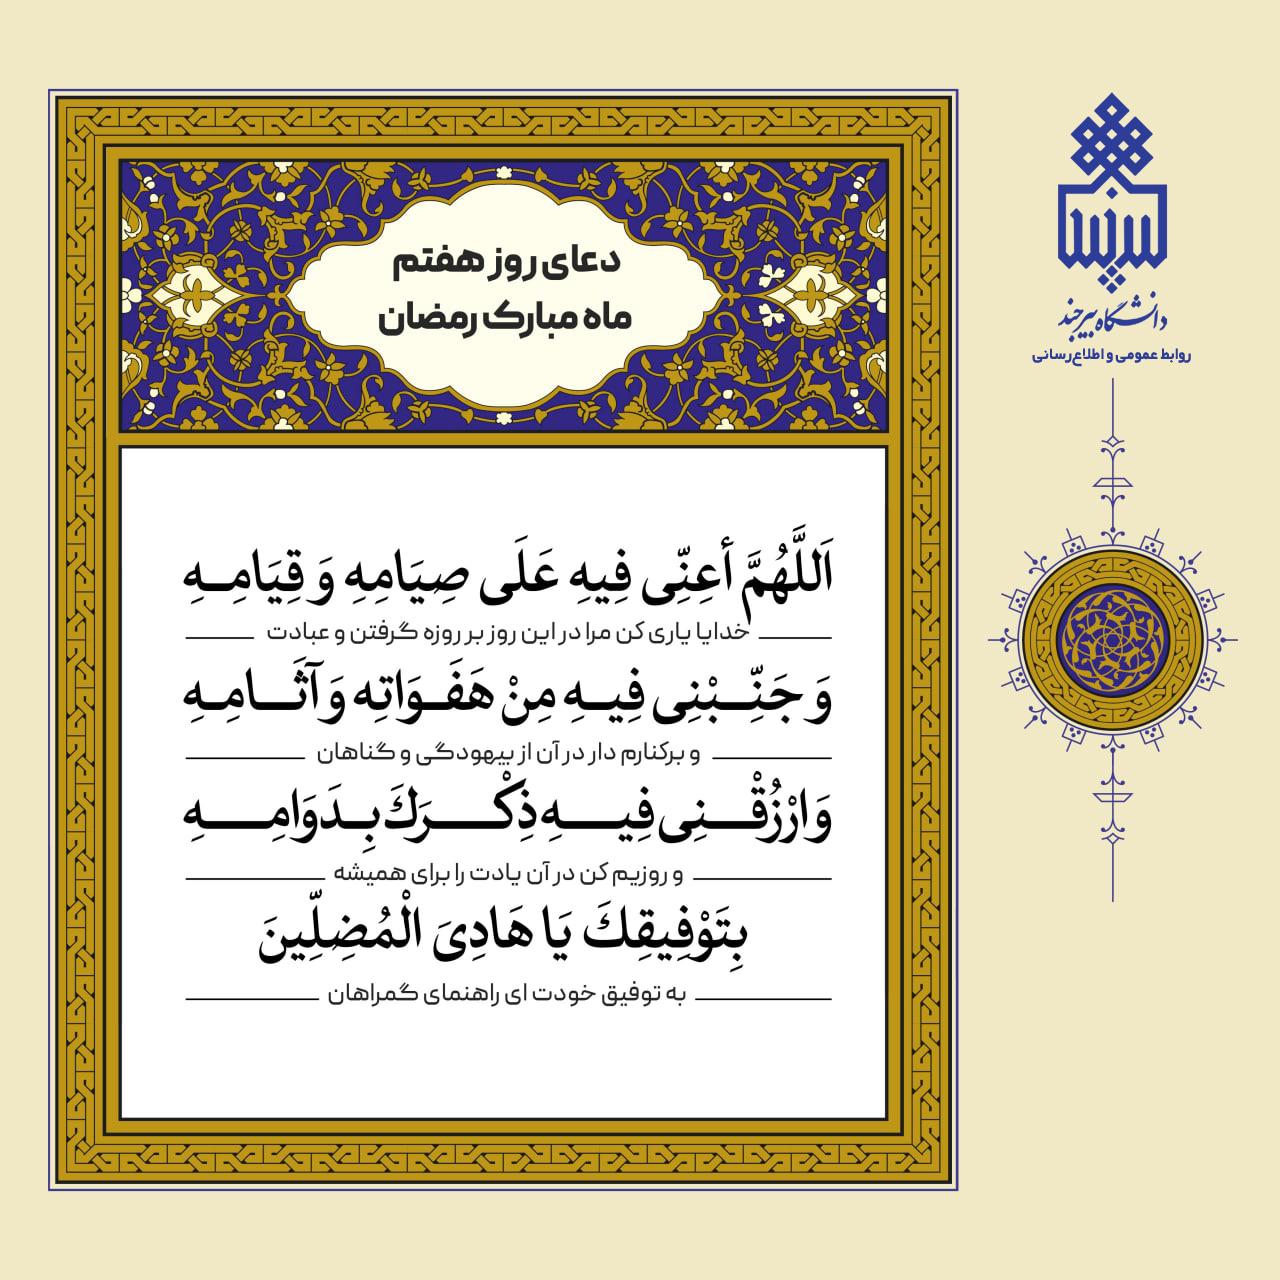 دعای روز هفتم
ماه مبارک رمضان
اَللَّهُمَّ أعِنِّی فِیهِ عَلَی صِیَامِهِ وَ قِیَامِـهِ
خدایا یاری کن مرا در این روز بر روزه گرفتن و عبادت
وَ جَنِّـبْنِی فِیـهِ مِنْ هَفَـوَاتِه وَ آثَـامِـهِ
و برکنارم دار در آن از بیهودگی و گناهان
وَ ارْزُقْـنِی فِیـهِ ذِكْـرَكَ بِـدَوَامِـهِ
و روزیم کن در آن یادت را برای همیشه
بِتَوْفِیقِكَ یَا هَادِیَ الْمُضِلِّینَ
به توفیق خودت ای راهنمای گمراهان
بیرجند
دانشگاه بیرجند
روابط عمومی و اطلاع‌رسانی